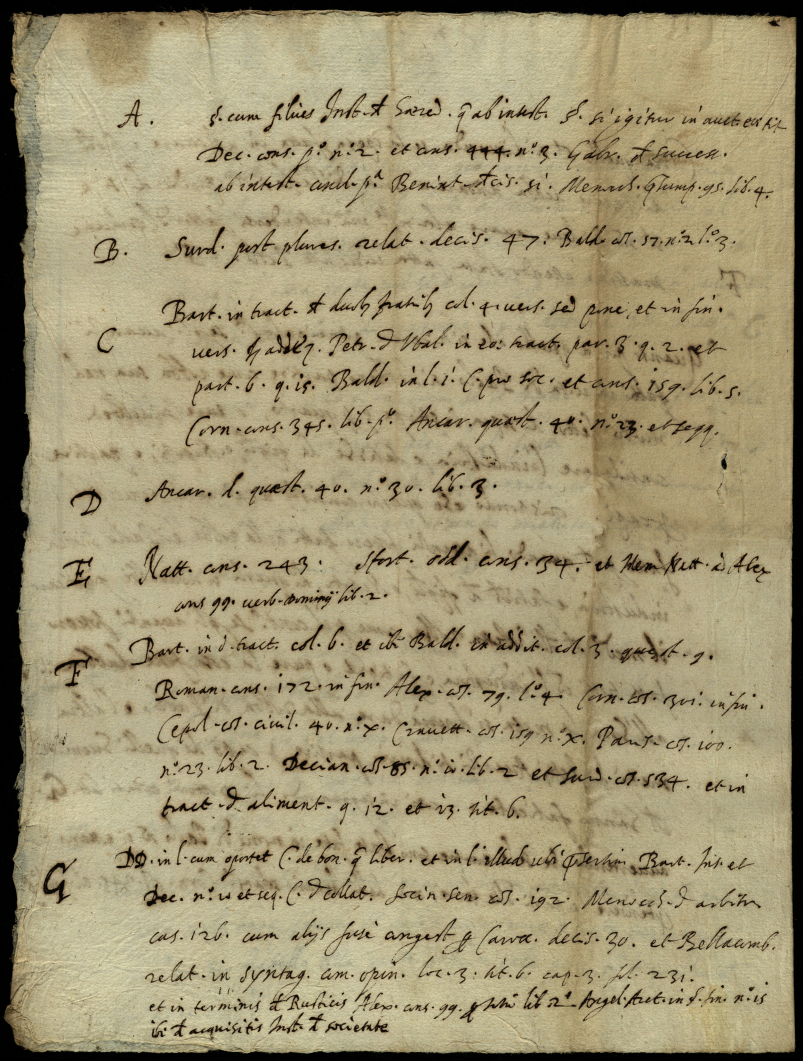 A. §. cum filius Inst. de Hered. q ab intest. §. si igitur in auct.
Dec. cons. pº nº 2. et cons. 444. nº 3. Gabr. de success.
ab intest. concl. pª Menoch. 95. lib. 4.
B. Surd. post plures relat. decis. 47. Bald. co. 57. nº 2 lº 3.
Bart. in tract. de duob fratib col. 4. vers. sed pone, et in fin.
C vers. Petr. d Ubal. in eo. tract. par. 3. q. 2. et
part. 6. q. 15. Bald. in l. 1. C. pro soc. et cons. 159. lib. 5.
Corn. cons. 345. lib. pº Ancar. quæst. 40. nº 23. et seqq.
D Ancar. d. quæst. 40. nº 30. lib. 3.
E Natt. cons. 243. Sfort. odd. cons. 34. et Natt. ad Alex
cons 99. verb. lib. 2.
F Bart. in d. tract. col. 6. et ibi Bald. in addit. col. 3. quæst. 9.
Roman. cons. 172. in fin. Alex. co. 79. lº 4 Corn. co. 301. in fin.
Cepol. co. civil. 40. nº x. Cravett. co. 159 nº x. Paris. co. 100.
nº 23. lib. 2. Decian. co. 85. nº lib. 2 et Surd. co. 334. et in
tract. d aliment. q. 12. et 13. tit. 6.
G DD. in l. cum oportet C. de bon. q liber. et in l. illud ubi Bart. et
Dec. nº 10 et seq. C. d collat. Socin. sen. co. 192. Menoch. d arbitr
cas. 126. cum alijs fusè decis. 30. et Bellacomb.
relat. in syntag. com. opin. loc. 3. tit. 6. cap. 3. fol. 231.
et in terminis de Rusticis Alex. cons. 99. lib 2º Angel. Aret. in §. fin. nº 15
ibi de acquisitis Inst. de societate